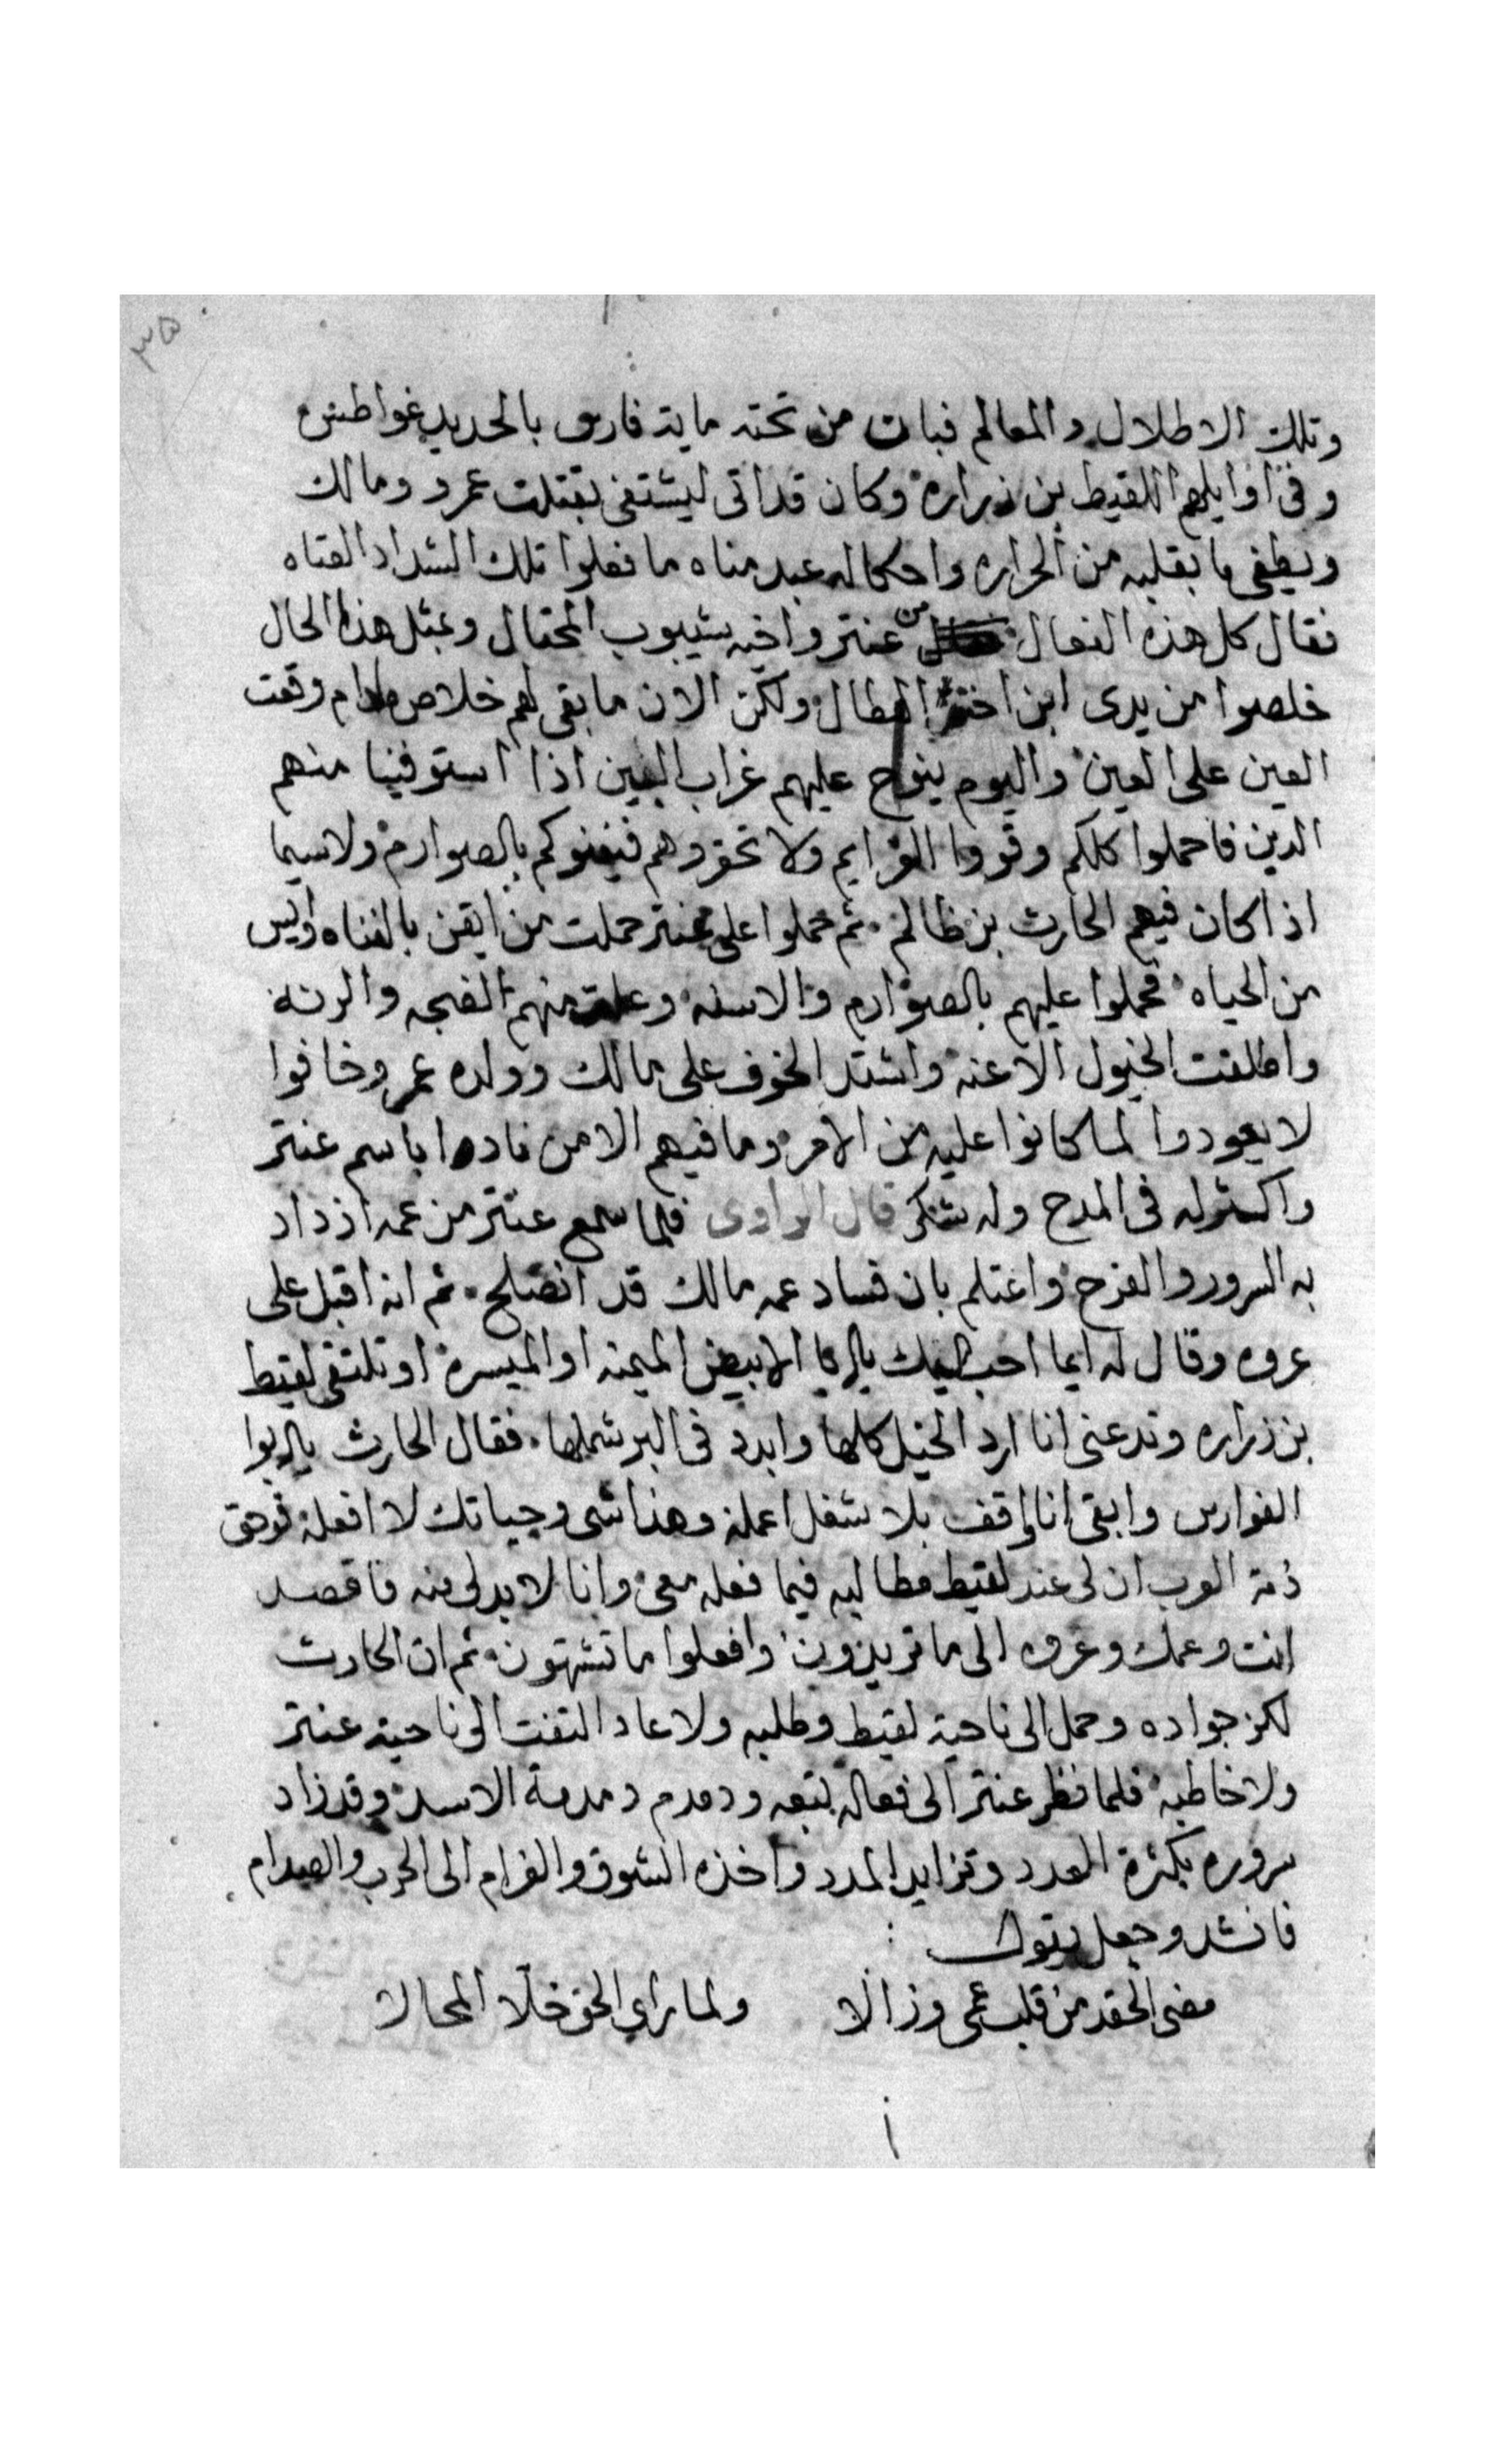 ٣٥
وتلك الاطلال والمعالم فبان من تحته ماية فارس بالحديد غواطس
وفى اوايلهم اللقيط بن زراره وكان قد اتى ليشتفى بقتلت عمرو ومالك
ويطفى ما بقلبه من الحراره واحكاله عبد مناه ما فعلوا تلك الشداد العتاه
فقال كل هذه الفعال من عنتر واخيه شيبوب المحتال وبمثل هذا الحال
خلصوا من يدى ابن اختى البطال ولكن الان ما بقى لهم خلاص مادام وقعت
العين على العين واليوم ينوح عليهم غراب البين اذا استوفينا منهم
الدين فاحملوا كلكم وقووا العزايم ولا تحقروهم فيفنوكم بالصوارم ولاسيما
اذا كان فيهم الحارث بن ظالم ثم حملوا على عنتر حملت من ايقن بالفناه وايس
من الحياه فحملوا عليهم بالصوارم والاسنه وعلت منهم الضجه والرنه
واطلقت الخيول الاعنه واشتد الخوف على مالك وولده عمر وخافوا
لا يعودوا لما كانوا عليه من الامر وما فيهم الا من نادا باسم عنتر
واكثر له فى المدح وله شكر قال الراوى فلما سمع عنتر من عمه ازداد
به السرور والفرح واعتلم بان فساد عمه مالك قد انصلح ثم انه اقبل على
عروه وقال له ايما احب اليك يابا الابيض الميمنه او الميسره او تلتقى لقيط
بن زراره وتدعنى انا ارد الخيل كلها وابدد فى البر شملها فقال الحارث يابوا
الفوارس وابقى انا واقف بلا شغل اعمله وهذا شى وحياتك لا افعله فوحق
ذمة العرب ان لى عند لقيط مطالبه فيما فعله معى وانا لابد لى منه فاقصد
انت وعمك وعروه الى ما تريدون وافعلوا ما تشتهون ثم ان الحارث
لكز جواده وحمل الى ناحية لقيط وطلبه ولا عاد التفت الى ناحية عنتر
ولا خاطبه فلما نظر عنتر الى فعاله تبعه ودمدم دمدمة الاسد وقد زاد
سروره بكثرة العدد وتزايد المدد واخذه الشوق والغرام الى الحرب والصدام
فانشد وجعل يقول
مضى الحقد من قلب عمى وزالا ولما راى الحق خلا المحالا